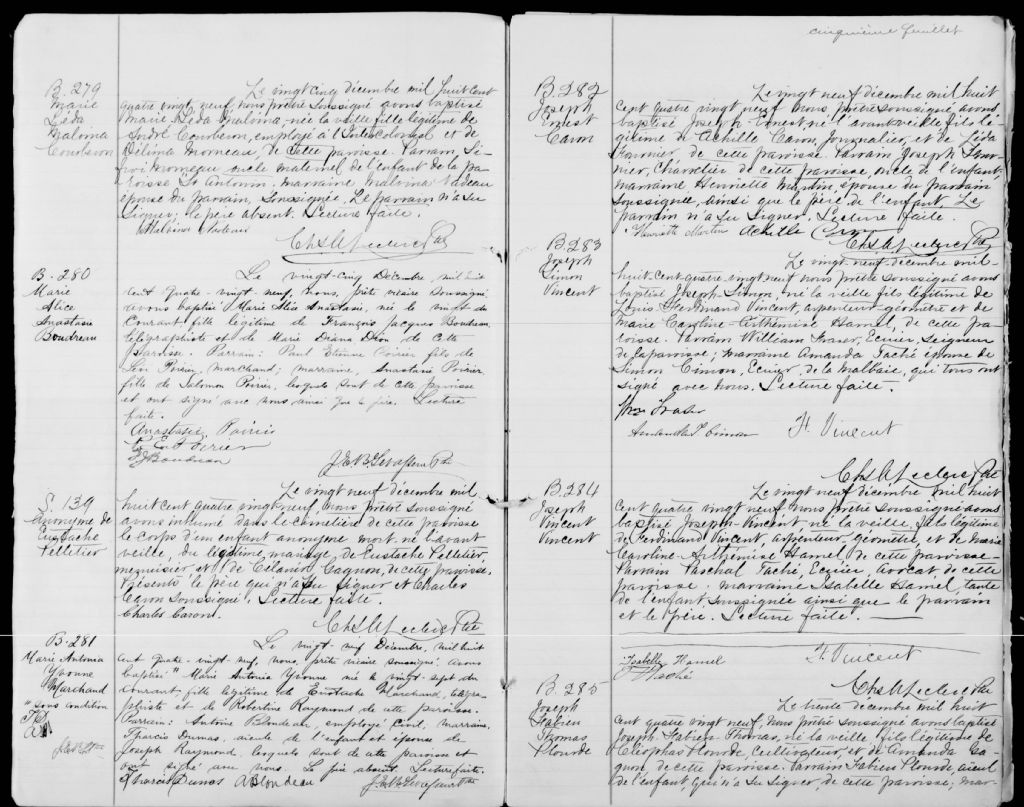 B. 279
Marie
Léda
Malvina
Courberon
Le vingt cinq décembre mil huit cent
quatre vingt neuf, nous prêtre soussigné avons baptisé
Marie Léda Malvina née la veille fille légitime de
André Courberon, employé à l'Intercolonial et de
Délima Morneau, de cette paroisse. Parrain,
Morneau oncle maternel de l'enfant de la pa-
roisse St Antonin. marraine, Malvina Nadeau
épouse du parrain, soussignée. Le parrain n'a su
signer; le père absent. Lecture faite.
Malvina Nadeau
Chs A Leclerc Ptre
B. 280
Marie
Alice
Anastasie
Boudreau
Le vingt-cinq Décembre, mil huit
cent quatre-vingt-neuf, nous, prêtre vicaire soussigné
avons baptisé Marie Alice Anastasie, née le vingt du
Courant fille légitime de François Jacques Boudreau
télégraphiste et de Marie Diana Dion de cette
paroisse. Parrain: Paul Etienne Poirier fils de
Poirier, marchand; marraine, Anastasie Poirier,
fille de Salomon Poirier, lesquels sont de cette paroisse
et ont signé avec nous, ainsi que le père. Lecture
faite.
Anastasie Poirier
P. E. Poirier
F J Boudreau
J. E. B. Levasseur Ptr
S. 139
Anonyme de
Eustache
Pelletier
Le vingt neuf décembre mil
huit cent quatre vingt neuf, nous prêtre soussigné
avons inhumé dans le cimetière de cette paroisse
le corps d'un enfant anonyme mort né l'avant
veille, du légitime mariage de Eustache Pelletier,
menuisier et de Gagnon, de cette paroisse.
Présents le père qui n'a su signer et Charles
Caron soussigné. Lecture faite.
Charles Caron.
Chs A Leclerc Ptre
B. 281
Marie Antonia
Yvonne
Marchand
"sous condition
Le vingt-neuf Décembre, mil huit
cent quatre-vingt-neuf, nous, prêtre vicaire soussigné avons
baptisé " Marie Antonia Yvonne née le vingt-sept du
courant, fille légitime de Eustache Marchand, télégra-
phiste et de Robertine Raymond de cette paroisse.
Parrain: Antoine Blondeau, employé civil, marraine,
Tharcis Dumas, aieule de l'enfant et épouse de
Joseph Raymond, lesquels sont de cette paroisse et
ont signé avec nous. Le père absent. Lecture faite.
Tharcis Dumas A Blondeau J. E. B. Levasseur Ptre
cinquième feuillet
B. 282
Joseph
Ernest
Caron
Le vingt neuf décembre mil huit
cent quatre vingt neuf nous prêtre soussigné avons
baptisé Joseph Ernest, né l'avant veille fils lé-
gitime de Achille Caron, journalier, et de Léda
Fournier, de cette paroisse. Parrain Joseph Four-
nier, charretier de cette paroisse, oncle de l'enfant;
marraine Henriette Martin, épouse du parrain
soussignée, ainsi que le père de l'enfant. Le
parrain n'a su signer. Lecture faite.
Henriette Martin Achille Caron
Chs A Leclerc Ptre
B. 283
Joseph
Simon
Vincent
Le vingt-neuf décembre mil-
huit-cent-quatre vingt neuf nous prêtre soussigné avons
baptisé Joseph Simon, né la veille fils légitime de
Louis Ferdinand Vincent, arpenteur-géomètre et de
Marie Caroline Arthémise Hamel, de cette pa-
roisse. Parrain William Fraser, Ecuier, Seigneur
de la paroisse; marraine Amanda Taché épouse de
Simon Cimon, Ecuier, de la Malbaie, qui tous ont
signé avec nous. Lecture faite.
Wm Fraser
Amanda T. Cimon F. Vincent
Chs A Leclerc Ptre
B. 284
Joseph
Vincent
Vincent
Le vingt neuf décembre mil huit
cent quatre vingt neuf nous prêtre soussigné avons
baptisé Joseph-Vincent né la veille, fils légitime
de Ferdinand Vincent, arpenteur-géomètre, et de Marie
Caroline Arthémise Hamel de cette paroisse-
Parrain Paschal Taché, Ecuier, avocat de cette
paroisse. marraine, Isabelle Hamel tante
de l'enfant, soussignée ainsi que le parrain
et le père. Lecture faite.
Isabelle Hamel F. Vincent
Taché
Chs A Leclerc Ptre
B. 285
Joseph
Fabien
Thomas
Plourde
Le trente décembre mil huit
cent quatre vingt neuf, nous prêtre soussigné avons baptisé
Joseph Fabien Thomas, né la veille fils légitime de
Cléophas Plourde, cultivateur, et de Amanda Ga-
gnon, de cette paroisse. Parrain Fabien Plourde aieul
de l'enfant, qui n'a su signer, de cette paroisse; mar-